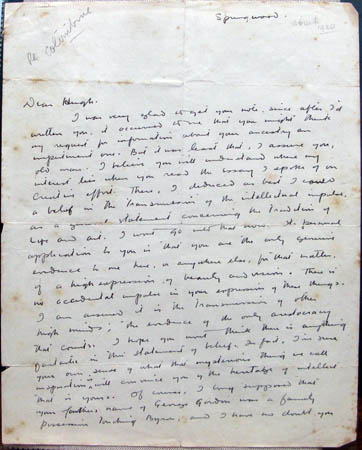 Springwood.
about
1920
Re Columbine
Dear Hugh.
I was very glad to get your note, since after I'd
written you, it occurred to me that you might think
my request for information about your ancestry an
impertinent one. But it was least that, I assure you,
old man. I believe you will understand where my
interest lies when you read the essay I spoke of on
Creative effort. There, I deduced as best I could
a belief in the transmission of the intellectual impulse,
as a general statement concerning the tradition of
Life and art. I won't go into that now. Its personal
application to you is that you are the only genuine
evidence to me here, or anywhere else, for that matter,
of a high expression of beauty and vision. There is
no accidental impulse in your expression of these things.
I am assured it is the transmission of other
high minds; the evidence of the only aristocracy
that counts. I hope you won't think there is anything
in this statement of belief. In fact, I'm sure
your own sense of what that mysterious thing we call
inspiration, will convince you of the heritage of intellect
that is yours. Of course, I long supposed that
your father's name of George Gordon was a family
possession touching Byron, and I have no doubt you